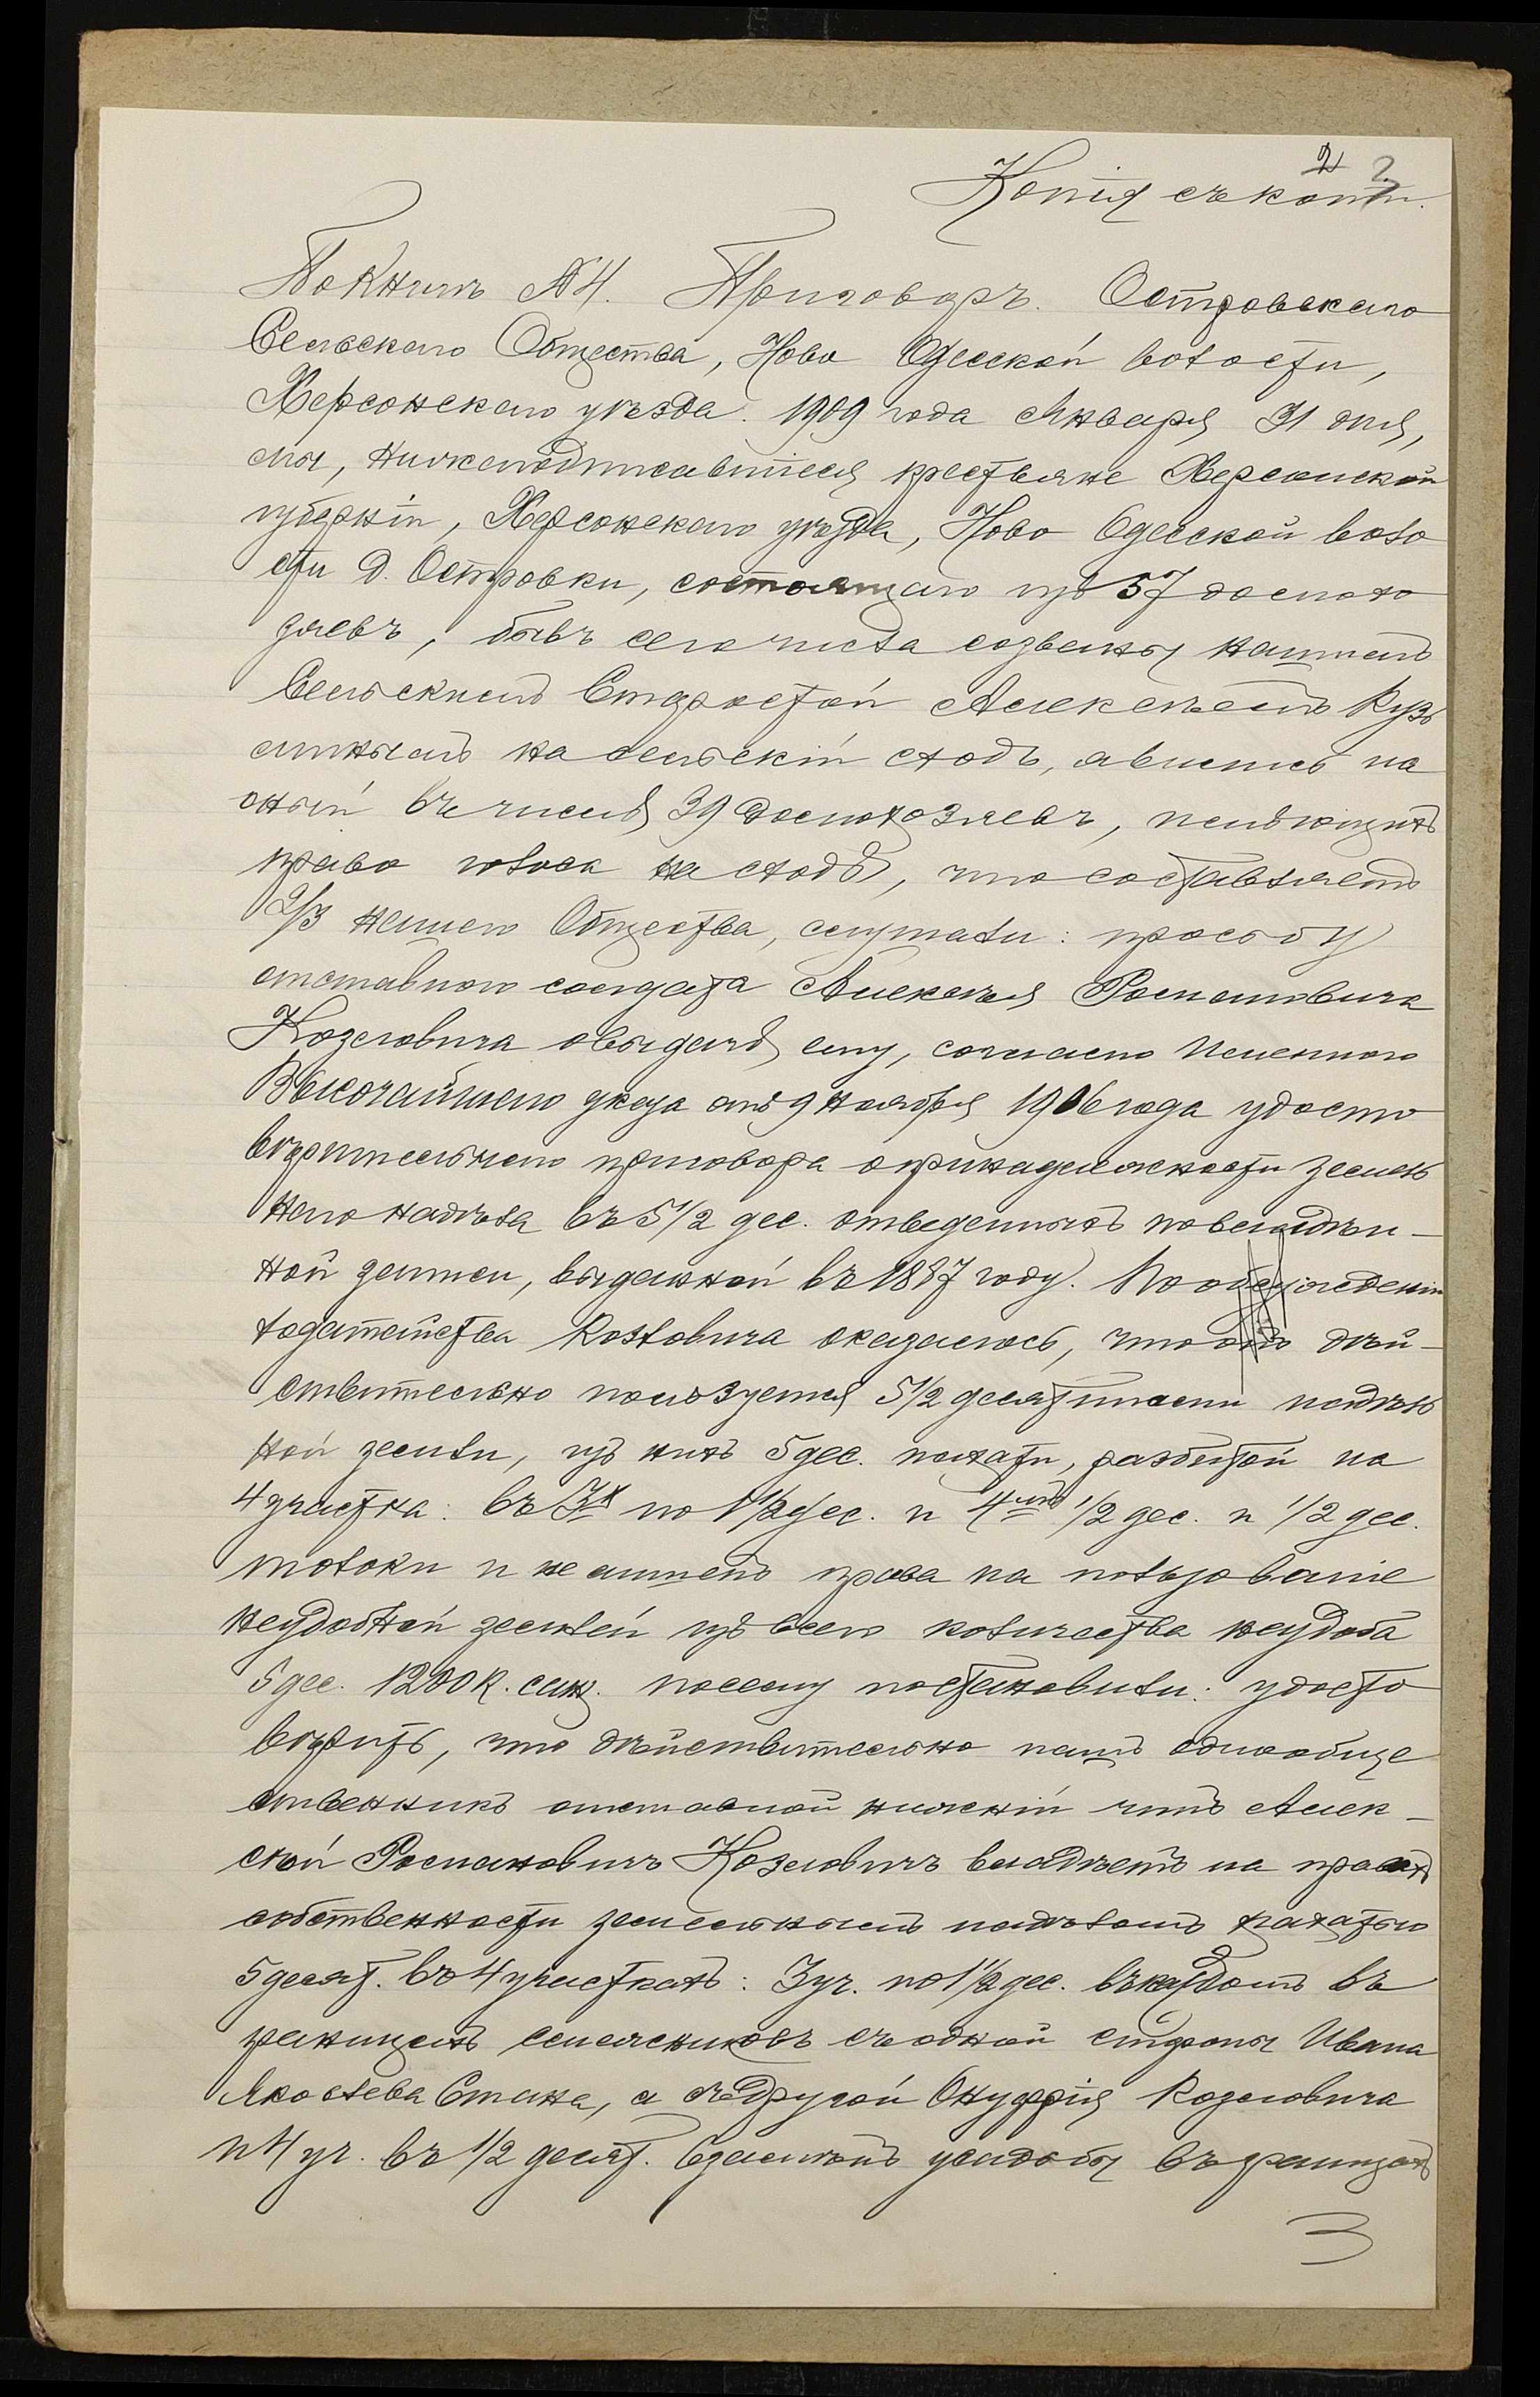 2 2
Копія съ копіи.
По книгѣ № 4. Приговоръ. Островскаго
Сельскаго Общества, Ново Одесской волости,
Херсонскаго уѣзда. 1909 года Января 31 дня,
мы, нижеподписавшіеся крестьяне Херсонской
губерніи, Херсонскаго уѣзда, Ново Одесской воло
сти д. Островки, состоящаго изъ 57 домохо
зяевъ, бывъ сего числа созваны нашимъ
Сельскимъ Старостой Алексѣемъ Кузь
минымъ на сельскій сходъ, явились на
оный въ числѣ 39 домохозяевъ, имѣющихъ
право голоса на сходѣ, что составляетъ
2/3 нашего Общества, слушали: просьбу
отставного солдата Алексѣя Романовича
Козловича о выдачѣ ему, согласно Именного
Высочайшаго указа отъ 9 Ноября 1906 года удосто
вѣрительнаго приговора о принадлежности земель
наго надѣла въ 5 1/2 дес. отведенныхъ по владѣн-
ной записи, выданной въ 1887 году. По обсужденіи
ходатайства Козловича оказалось, что онъ дѣй-
ствительно пользуется 5 1/2 десятинами надѣль
ной земли, изъ нихъ 5 дес. пахати, разбитой на
4 участка: въ 3х по 1 1/2 дес. и 4мъ 1/2 дес. и 1/2 дес.
толоки и не имѣетъ права на пользованіе
неудобной землей изъ всего количества неудоба
5 дес. 1200 к. саж. посему постановили: удосто
вѣрить, что дѣйствительно нашъ однообще
ственникъ отставной нижній чинъ Алек-
сѣй Романовичъ Козловичъ владѣетъ на правѣ
собственности земельнымъ надѣломъ пахатью
5 десят. въ 4 участкахъ: 3 уч. по 1 1/2 дес. въ каждомъ въ
границахъ смежниковъ съ одной стороны Ивана
Яковлева Смина, а съ другой Онуфрія Козловича
и 4 уч. въ 1/2 десят. усадьбы въ границахъ
3